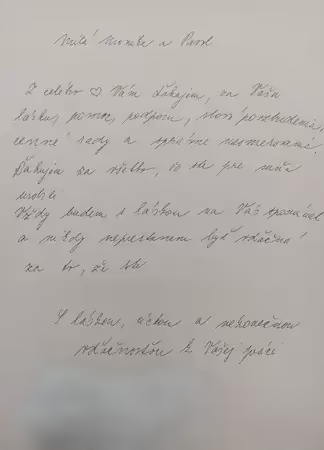 Milá Monika a Pavol
Z celého ♡ Vám ďakujem, za Vašu
lásku, pomoc, podporu, slová povzbudenia,
cenné rady a správne nasmerovanie.
Ďakujem za všetko, čo ste pre mňa
urobili
Vždy budem s láskou na Vás spomínať
a nikdy neprestanem byť vďačná
za to, že ste
S láskou, úctou a nekonečnou
vďačnosťou k Vašej práci